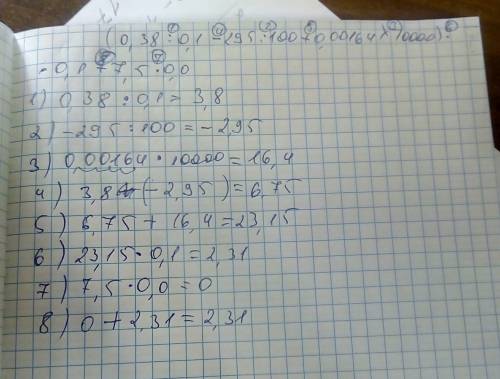 (0,38 : 0,1 - 295 : 100 + 0,00164 × 10000) ·
· 0,1 + 7,5 · 0,0
1) 0,38 : 0,1 = 3,8
2) - 295 : 100 = - 2,95
3) 0,00164 · 10000 = 16,4
4) 3,8 (- 2,95) = 6,75
5) 6,75 + 16,4 = 23,15
6) 23,15 · 0,1 = 2,31
7) 7,5 · 0,0 = 0
8) 0 + 2,31 = 2,31